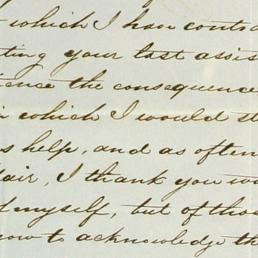 which I have contra
ting your last assis
ience the consequence
in which I would st
s help, and as often
fair, I thank you w
d myself, but of thos
now to acknowledge th